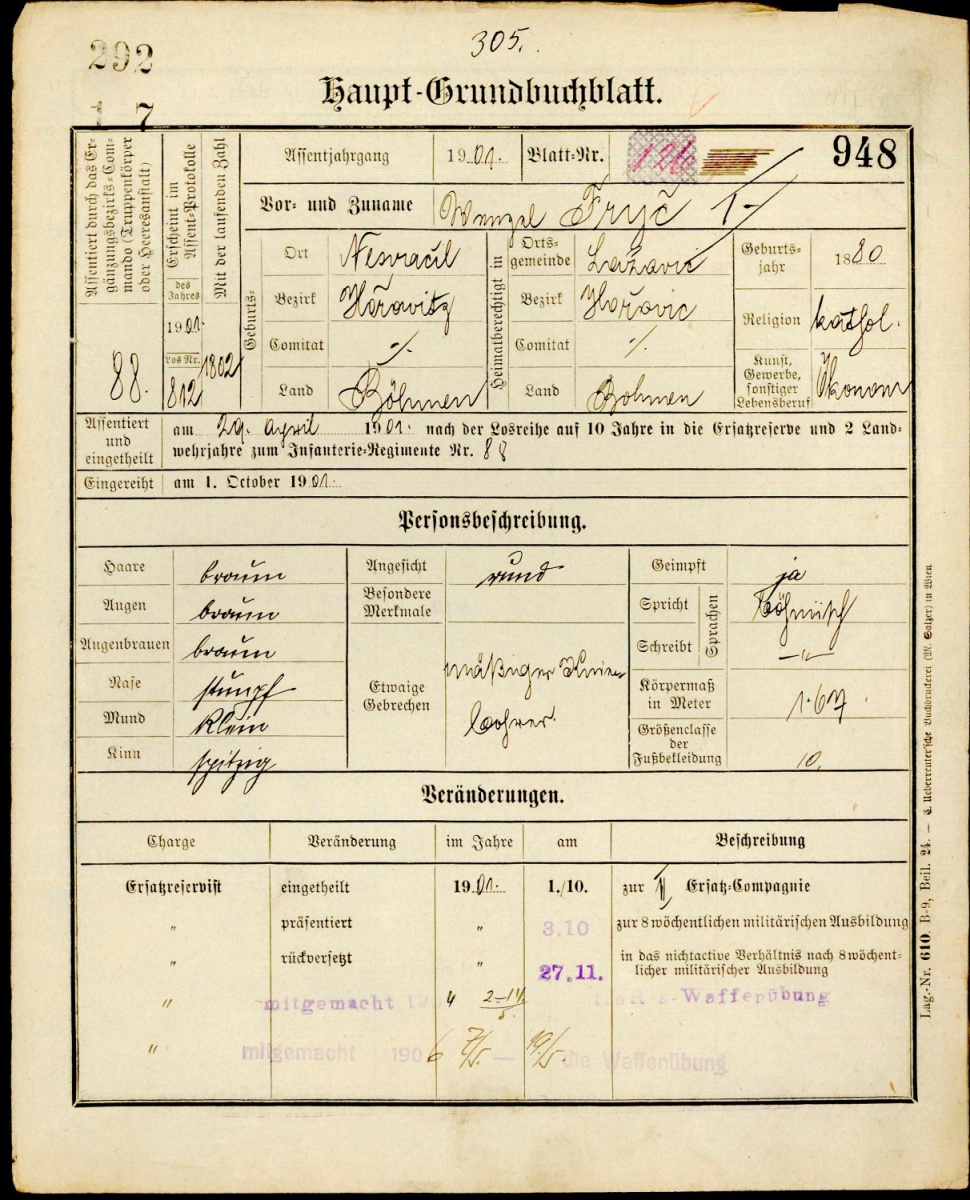 292
305.
1 7
Haupt-Grundbuchblatt.
Assentiert durch das Ergänzungsbezirks-Commando (Truppenkörper oder Heeresanstalt)
88.
Erscheint im Assent-Protokolle
des Jahres
1901.
Los Nr.
812
Mit der laufenden Zahl
1802
Assentjahrgang 1901. Blatt-Nr. 126 948
Vor- und Zuname Wenzel Fryč
Geburts-
Ort Nesvačil
Bezirk Hořowitz
Comitat ·/.
Land Böhmen
Heimatberechtigt in
Orts-
gemeinde Lažovic
Bezirk Hořovic
Comitat ·/.
Land Böhmen
Geburts-
jahr 1880
Religion kathol.
Kunst,
Gewerbe,
sonstiger
Lebensberuf Ökonom
Assentiert
und
eingetheilt
am 29. April 1901. nach der Losreihe auf 10 Jahre in die Ersatzreserve und 2 Land-
wehrjahre zum Infanterie-Regimente Nr. 88
Eingereiht am 1. October 1901.
Personsbeschreibung.
Haare braun
Augen braun
Augenbrauen braun
Nase stumpf
Mund klein
Kinn spitzig
Angesicht rund
Besondere
Merkmale
Etwaige
Gebrechen
mäßiger Knie-
bohrer.
Geimpft ja
Sprachen
Spricht böhmisch
Schreibt —"—
Körpermaß
in Meter 1·67
Größenclasse
der
Fußbekleidung 10.
Veränderungen.
Charge Veränderung im Jahre am Beschreibung
Ersatzreservist eingetheilt 1901. 1./10. zur Ersatz-Compagnie
" präsentiert " 3.10 zur 8 wöchentlichen militärischen Ausbildung
" rückversetzt " 27.11. in das nichtactive Verhältnis nach 8 wöchent-
licher militärischer Ausbildung
" mitgemacht 1904 2–14/5. -Waffenübung
" mitgemacht 1906 7/5. — 19/5. die Waffenübung
Lag.-Nr. 610. B-9, Beil. 24. — C. Ueberreuter'sche Buchdruckerei (M. Salzer) in Wien.